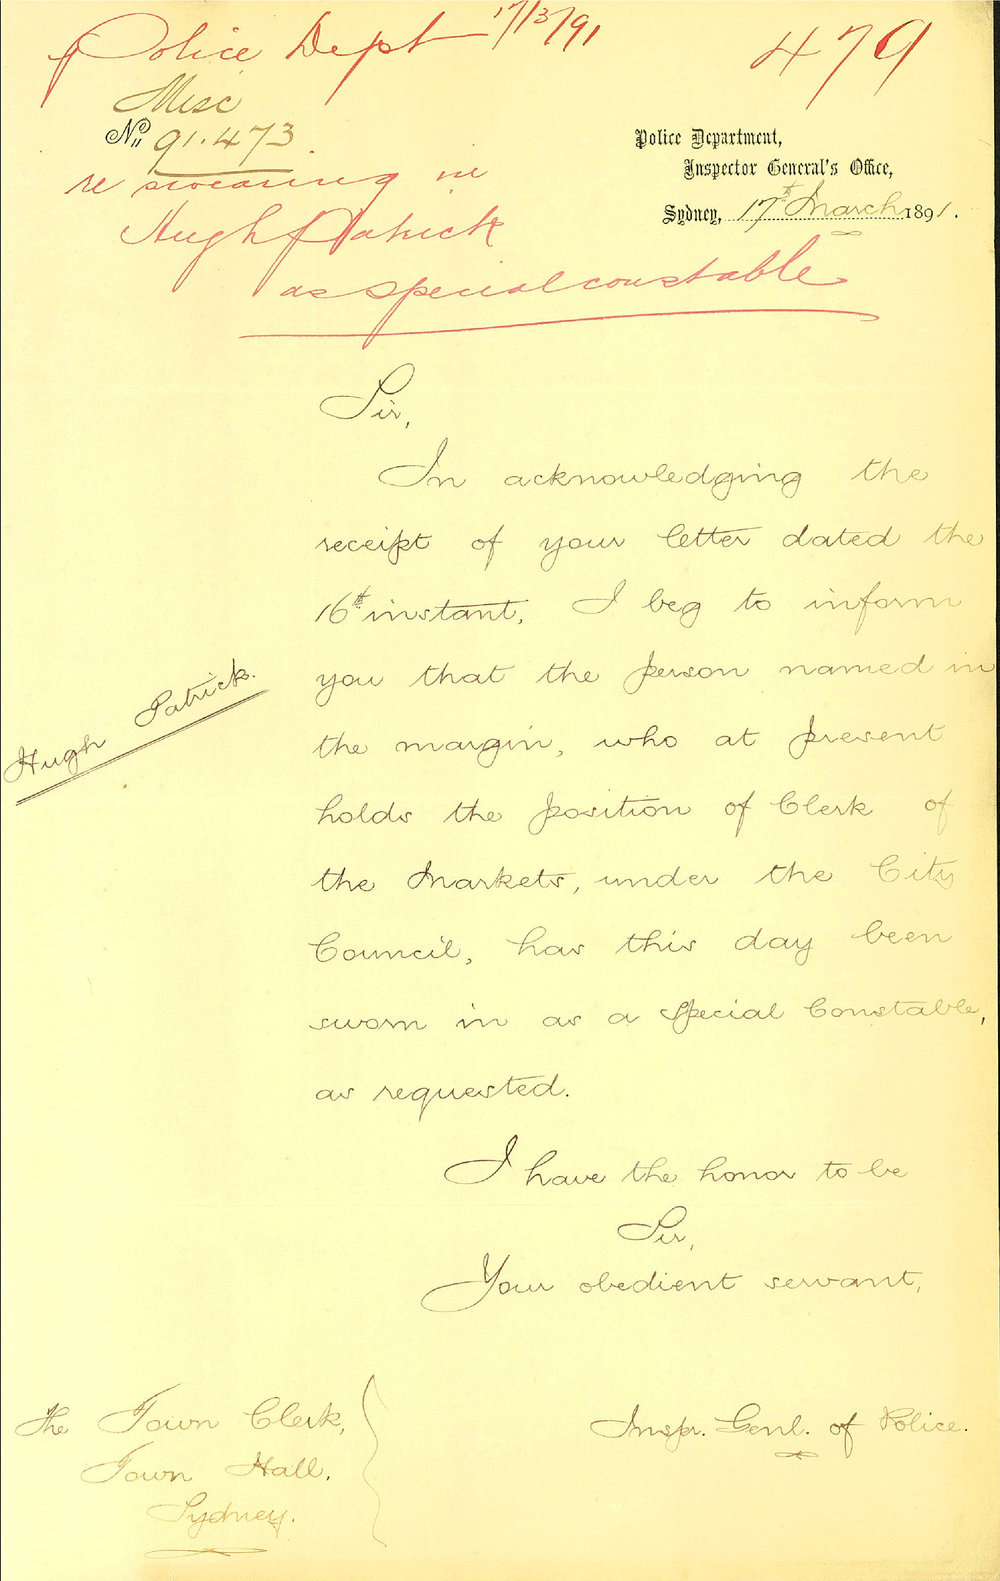 Police Dept 17/3/91
479
Misc
No. 91.473.
re swearing in
Hugh Patrick
as special constable
Police Department,
Inspector General's Office,
Sydney, 17th March 1891.
Sir,
In acknowledging the
receipt of your letter dated the
16th instant, I beg to inform
you that the person named in
the margin, who at present
holds the position of Clerk of
the Markets, under the City
Council, has this day been
sworn in as a Special Constable,
as requested.
Hugh Patrick.
I have the honor to be
Sir,
Your obedient servant,
Inspr. Genl. of Police.
The Town Clerk,
Town Hall,
Sydney.